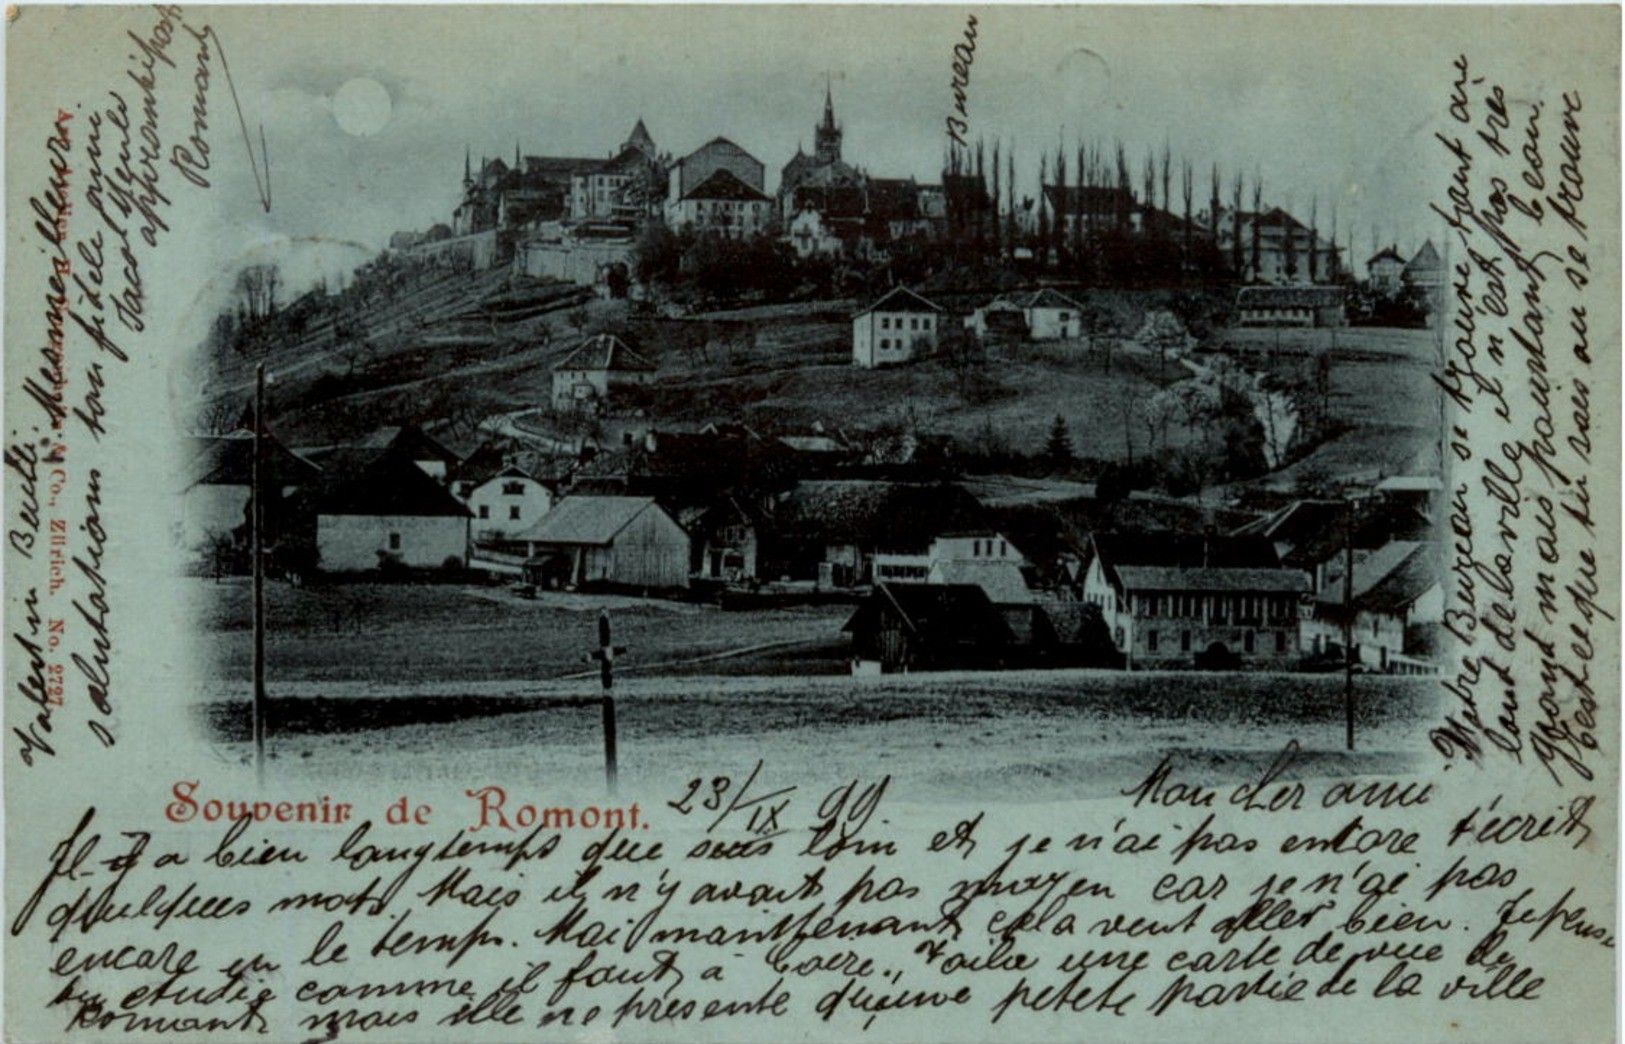 Souvenir de Romont.
23/IX 99
Mon cher ami
Il y a bien longtemps que suis loin et je n'ai pas encore t'écrit
quelques mots. Mais il n'y avait pas moyen car je n'ai pas
encore eu le temps. Mai maintenant cela veut aller bien. Je pense
tu etudie comme il faut à Coire. Voila une carte de vue de
Romont mais elle ne présente qu'une petete partie de la ville
Votre Bureau se trouve tout aire
bout de la ville il n'est pas très
grand mais pourtant beau.
C'est ce que tu sais ou se trouve
Bureau
Valentin
salutations ton fidèle ami
Jacot
Romont
No. 2727
& Co., Zürich.